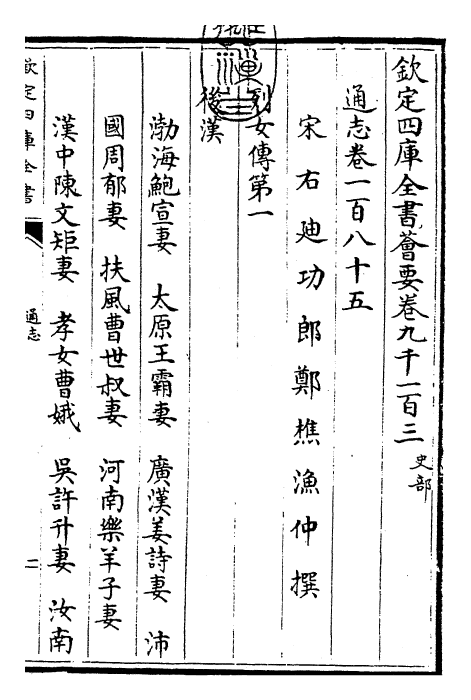 欽定四庫全書薈要卷九千一百三 史部
通志卷一百八十五
宋右廸功郎鄭樵漁仲撰
列女傳第一
後漢
渤海鮑宣妻 太原王霸妻 廣漢姜詩妻 沛
國周郁妻 扶風曹世叔妻 河南樂羊子妻
漢中陳文矩妻 孝女曹娥 吳許升妻 汝南
欽定四庫全書
通志